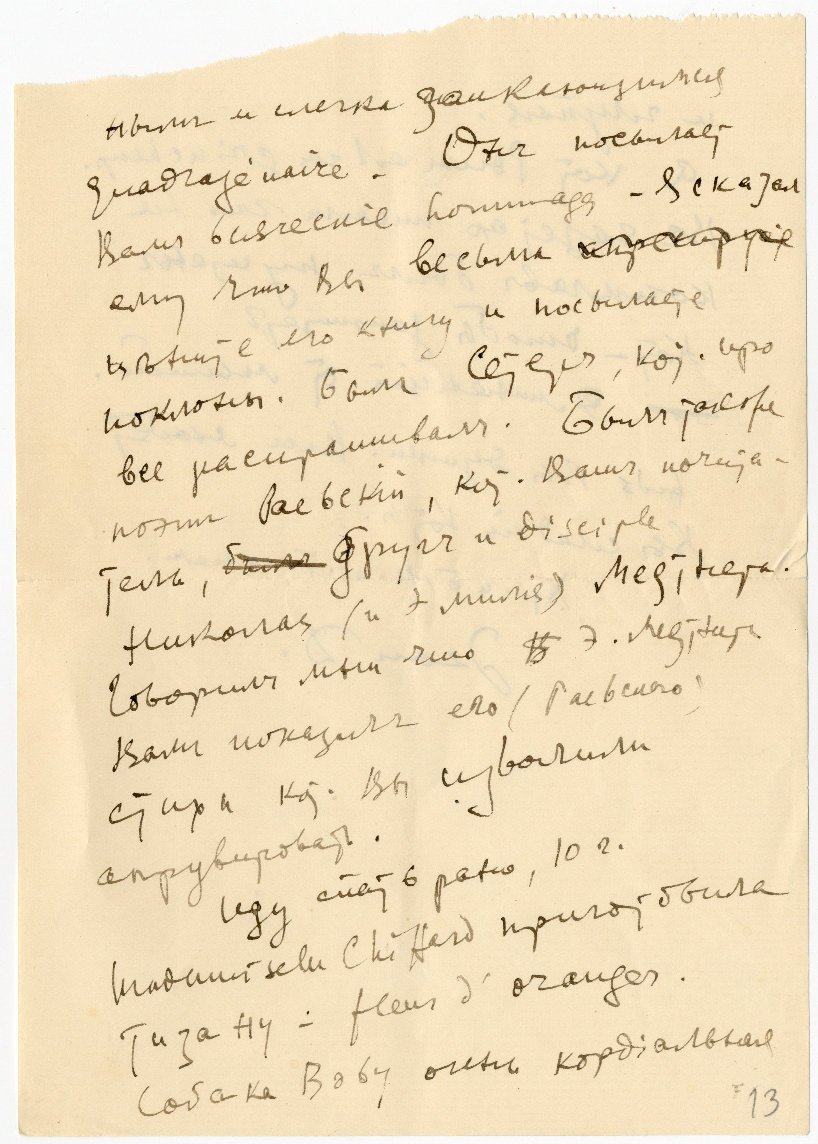 нымъ и слегка заикающимся
quadragénaire - Онъ посылаетъ
Вамъ всяческіе hommages - Я сказал
ему что Вы весьма
цѣните его книгу и посылаете
поклоны. Былъ Сеземъ, кот. про
все распрашивалъ. Былъ также
поэтъ Раевскій, кот. Вашъ почита-
тель, былъ другъ и disciple
Николая (и Эмилія) Метнера.
Говорилъ мнѣ что Э. Метнеръ
Вамъ показалъ его (Раевского)
стихи кот. Вы изволили
апрувировать.
Иду спать рано, 10 ч.
Mademoiselle Chiffard приготовила
тизану - fleurs d'oranger.
Собака Боby очень кордіальная
13